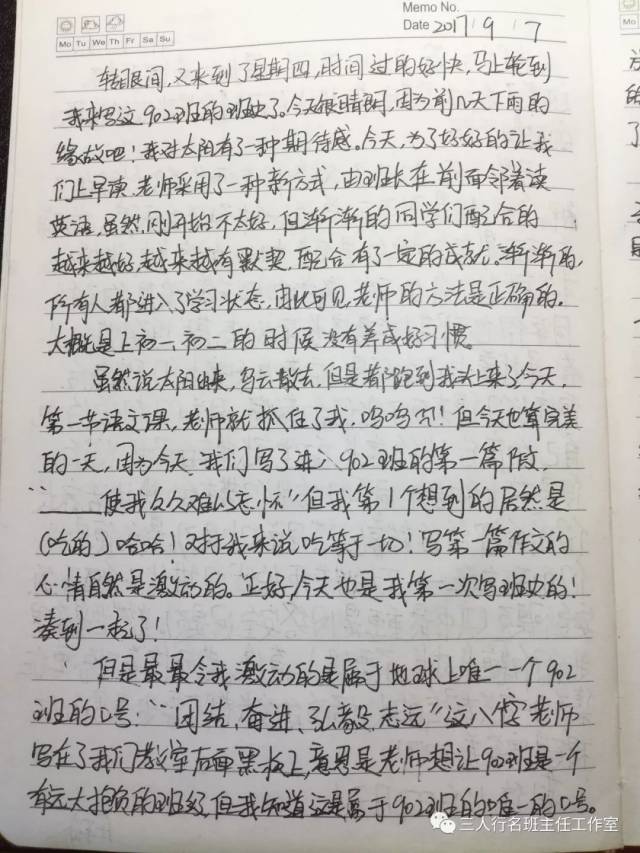 Memo No.
Date 2017 9 7
Mo Tu We Th Fr Sa Su
转眼间,又来到了星期四,时间过的好快,马上轮到
我来写这902班的班史了。今天很晴朗,因为前几天下雨的
缘故吧!我对太阳有了一种期待感。今天,为了好好的让我
们上早读,老师采用了一种新方式,由班长在前面邻着读
英语,虽然,刚开始不太好,但渐渐的同学们配合的
越来越好,越来越有默契,配合有了一定的成就。渐渐的,
所有人都进入了学习状态,由此可见,老师的方法是正确的。
大概是上初一、初二的时候没有养成好习惯。
虽然说太阳出来,乌云散去,但是都跑到我头上来了,今天,
第一节语文课,老师就抓住了我,呜呜 但今天也算完美
的一天,因为今天,我们写了进入902班的第一篇作文,
“____使我久久难以忘怀”但我第1个想到的居然是
(吃的)哈哈!对于我来说,吃等于一切!写第一篇作文的
心情自然是激动的。正好,今天也是我第一次写班史的!
凑到一起了!
但是最最令我激动的是属于地球上唯一一个902
班的口号:“团结、奋进、弘毅、志远”这八个字老师
写在了我们教室后面黑板上,意思是老师想让902班是一个
有远大抱负的班级,但我知道这是属于902班的唯一的口号。
三人行名班主任工作室